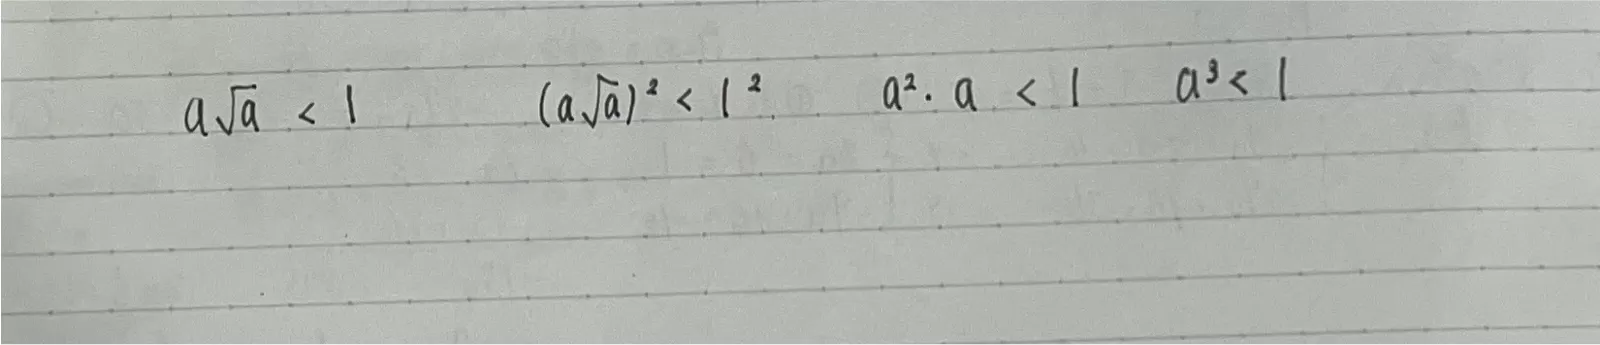 a√a < 1 (a√a)² < 1² a² · a < 1 a³ < 1